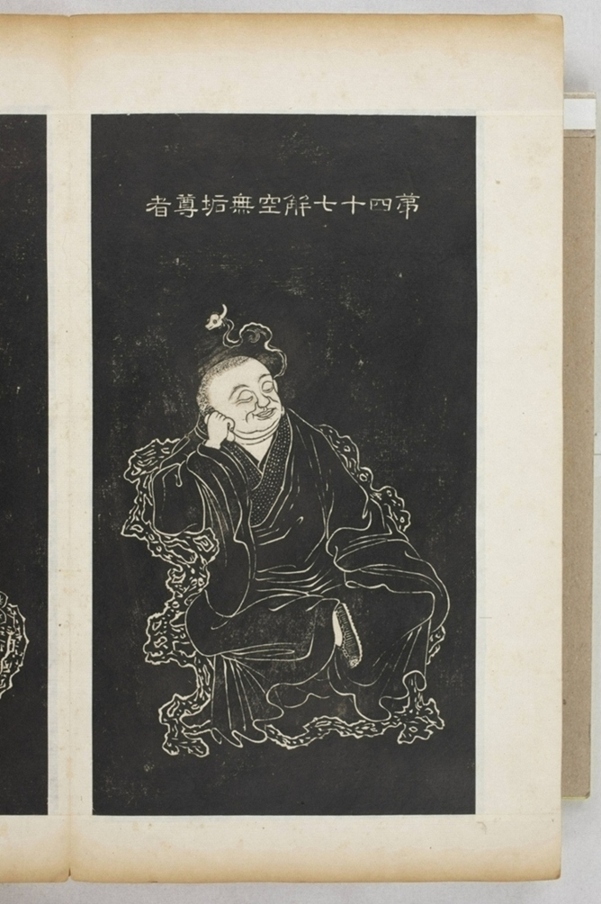 第四十七解空無垢尊者